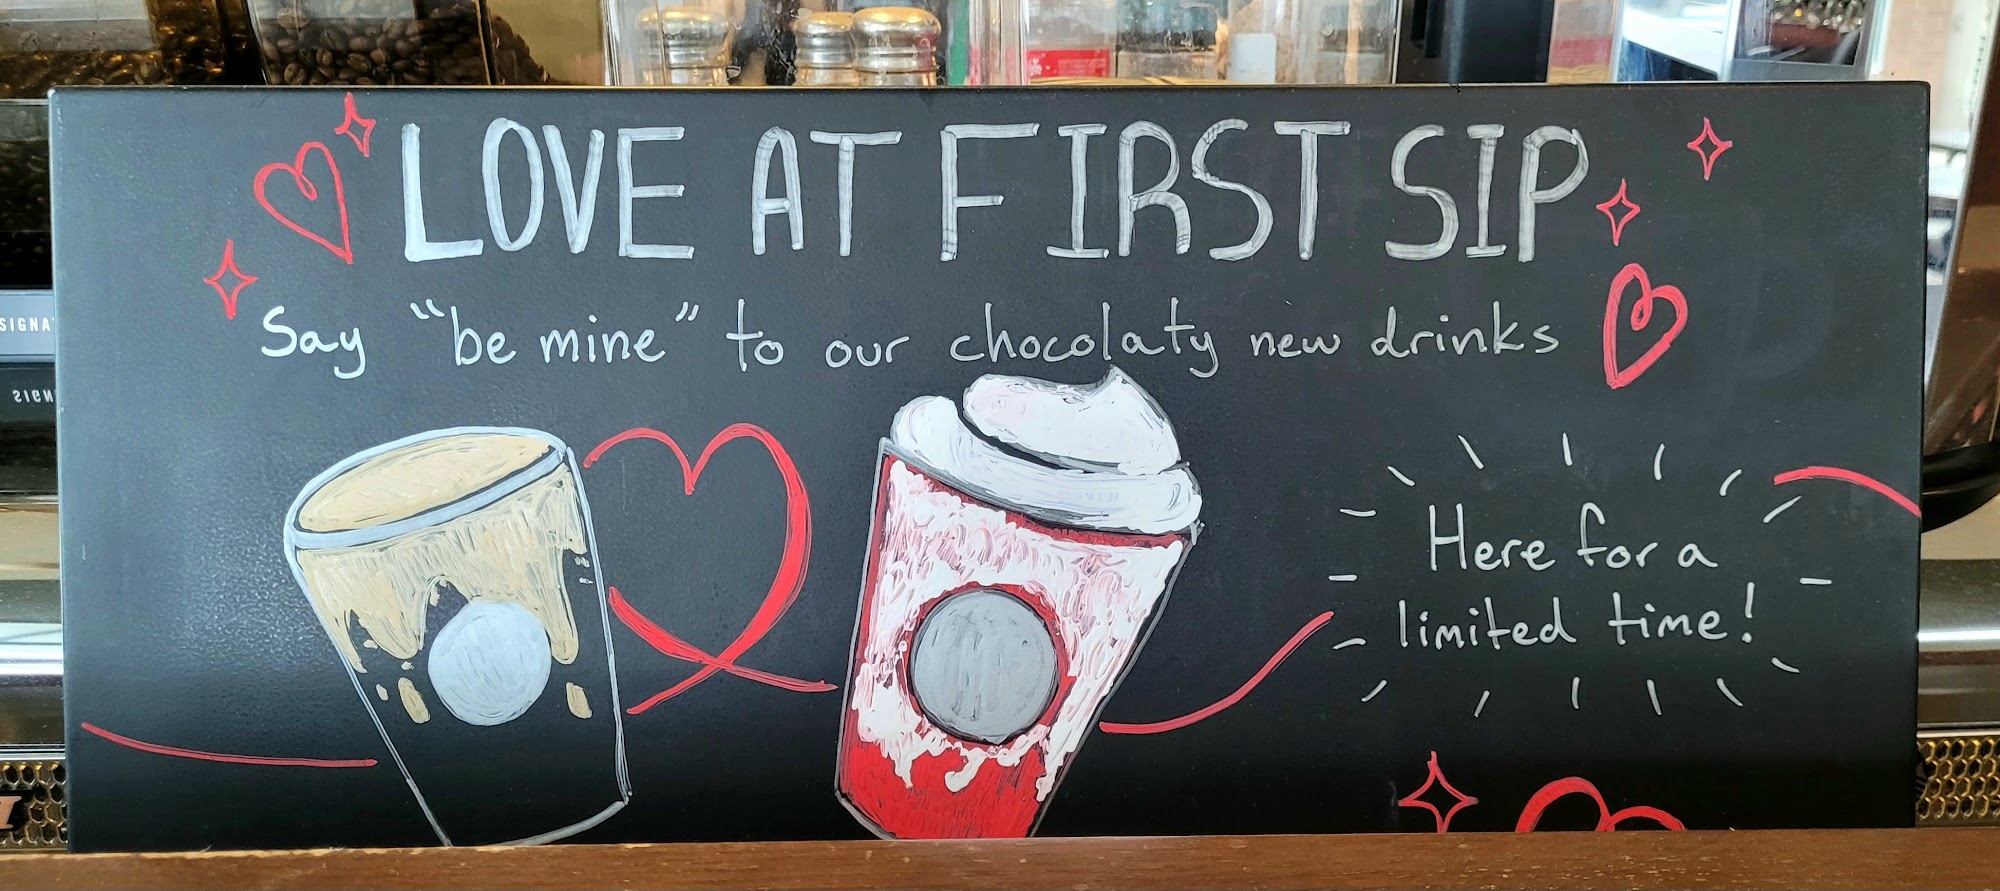 LOVE AT FIRST SIP
Say "be mine" to our chocolaty new drinks
Here for a
limited time!
SIGNA